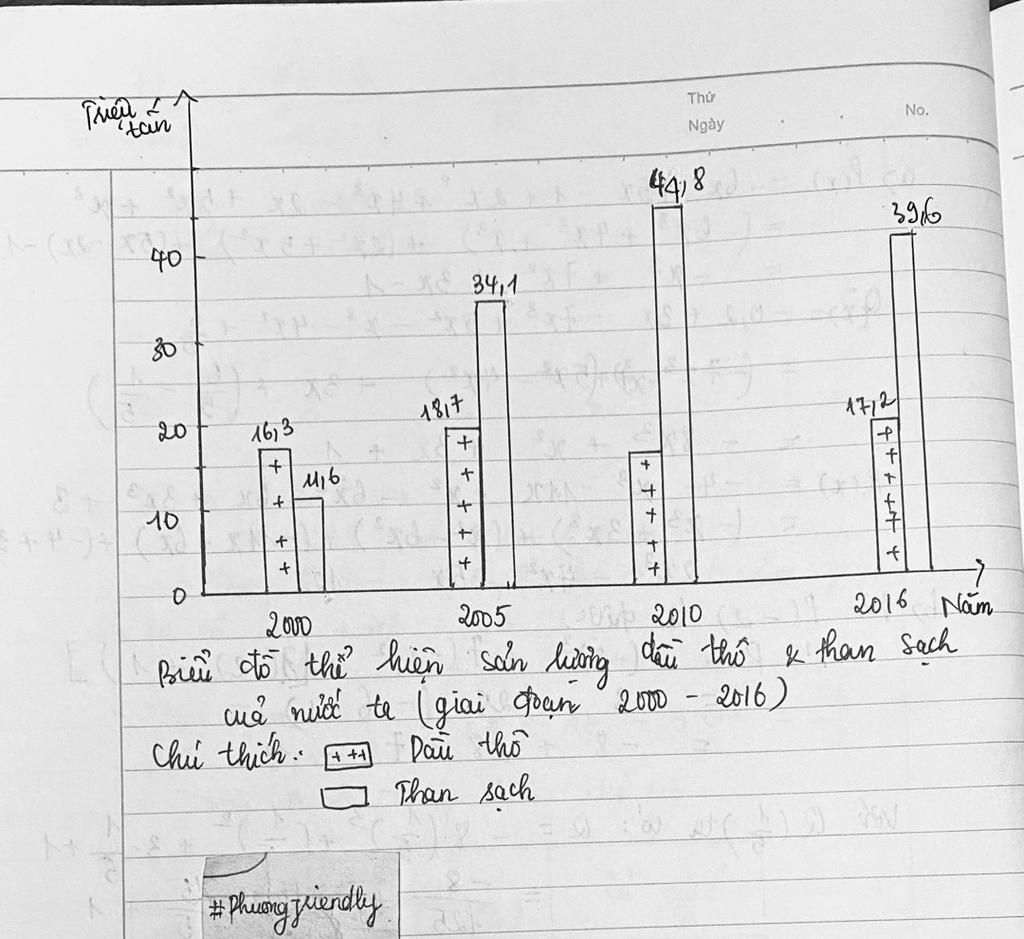 Triệu tấn
Thứ
Ngày
No.
44,8
39,6
40
34,1
30
20
18,7
17,2
16,3
11,6
10
0
2000
2005
2010
2016
Năm
Biểu đồ thể hiện sản lượng dầu thô & than sạch
cuả nước ta (giai đoạn 2000 - 2016)
Chú thích: +++ Dầu thô
Than sạch
#Phuongfriendly